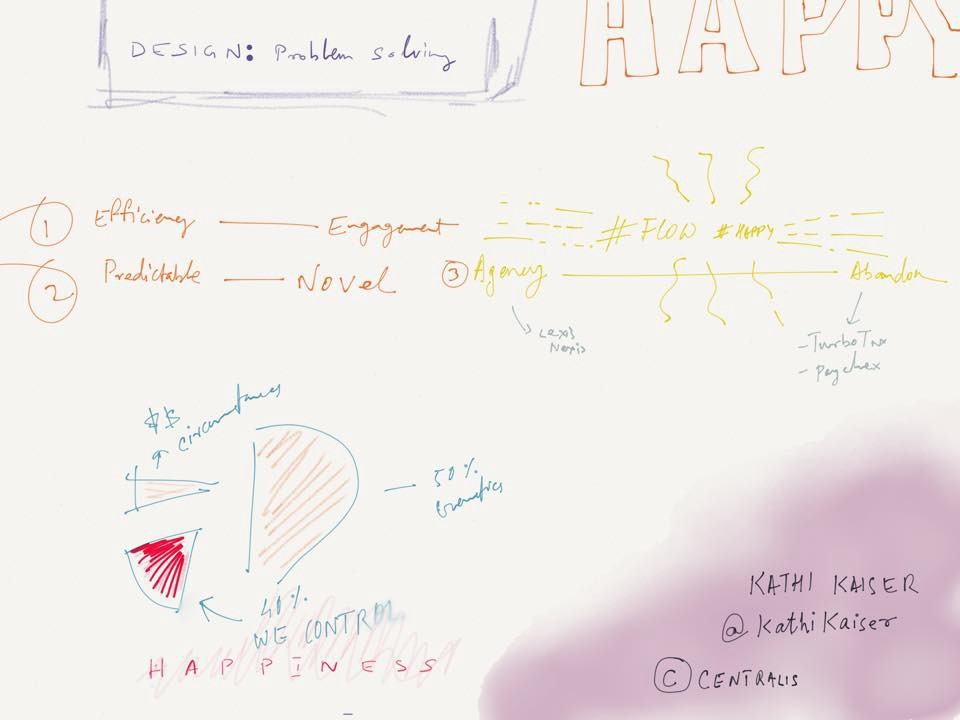 DESIGN: Problem solving
HAPPY
1 Efficiency — Engagement
#FLOW #HAPPY
2 Predictable — Novel
3 Agency — Abandon
Lexis
Nexis
- TurboTax
- Paychex
$$
circumstances
50%
Genetics
40%
WE CONTROL
HAPPINESS
KATHI KAISER
@KathiKaiser
© CENTRALIS